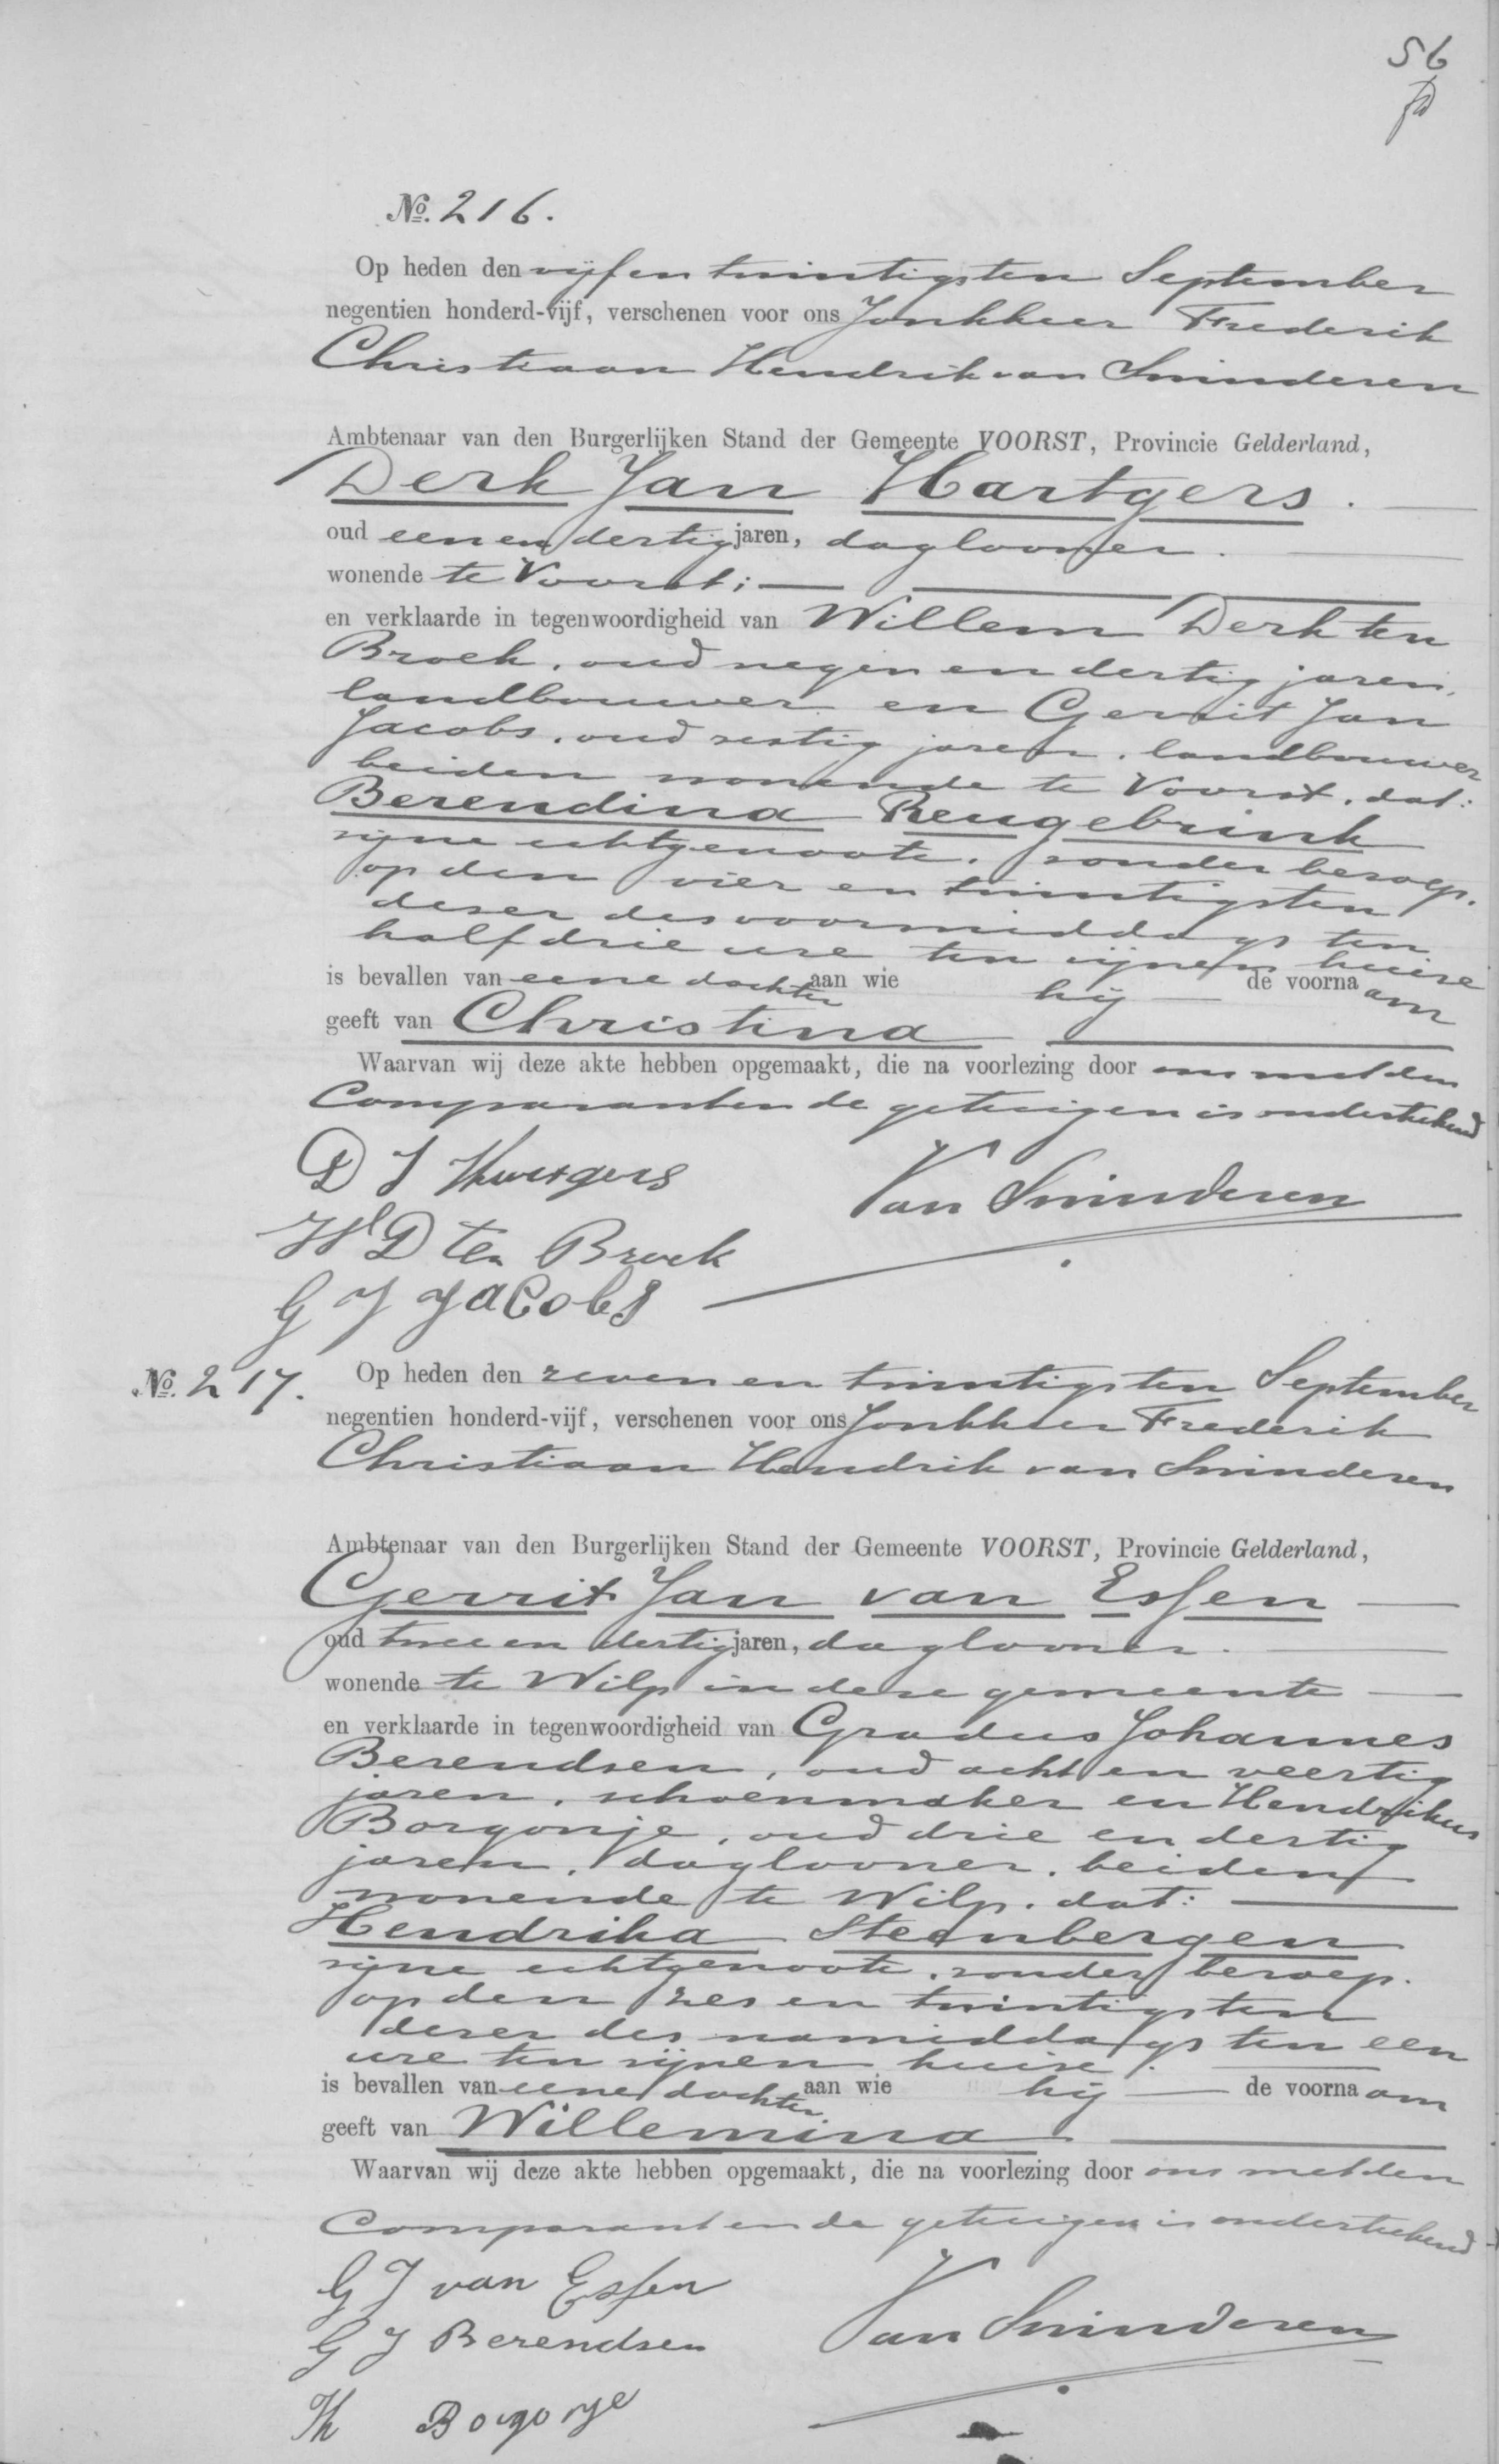 56
No. 216.
Op heden den vijfentwintigsten September
negentien honderd-vijf, verschenen voor ons Jonkheer Frederik
Christiaan Hendrik van Swinderen
Ambtenaar van den Burgerlijken Stand der Gemeente VOORST, Provincie Gelderland,
Derk Jan Hartgers.
oud eenendertig jaren, daglooner.
wonende te Voorst;
en verklaarde in tegenwoordigheid van Willem Derk ten
Broek, oud negenendertig jaren,
landbouwer en Gerrit Jan
Jacobs, oud zestig jaren, landbouwer
beiden wonende te Voorst, dat:
Berendina Reugebrink
zijne echtgenoote, zonder beroep.
op den vier en twintigsten
dezer des voormiddags ten
half drie ure ten zijnen huize
is bevallen van eene dochter aan wie hij de voornaam
geeft van Christina
Waarvan wij deze akte hebben opgemaakt, die na voorlezing door ons met den
Comparant en de getuigen is onderteekend
D J Hartgers
Van Swinderen
W D ten Broek
G J Jacobs
No. 217.
Op heden den zevenentwintigsten September
negentien honderd-vijf, verschenen voor ons Jonkheer Frederik
Christiaan Hendrik van Swinderen
Ambtenaar van den Burgerlijken Stand der Gemeente VOORST, Provincie Gelderland,
Gerrit Jan van Essen
oud twee en dertig jaren, daglooner.
wonende te Wilp in deze gemeente
en verklaarde in tegenwoordigheid van Gradus Johannes
Berendsen, oud acht en veertig
jaren, schoenmaker en Hendrikus
Borgonje, oud drie en dertig
jaren, daglooner, beiden
wonende te Wilp, dat:
Hendrika Steenbergen
zijne echtgenoote, zonder beroep.
op den zes en twintigsten
dezer des namiddags ten een
ure ten zijnen huize.
is bevallen van eene dochter aan wie hij de voornaam
geeft van Willemina
Waarvan wij deze akte hebben opgemaakt, die na voorlezing door ons met den
Comparant en de getuigen is onderteekend
G J van Essen
Van Swinderen
G J Berendsen
H Borgonje